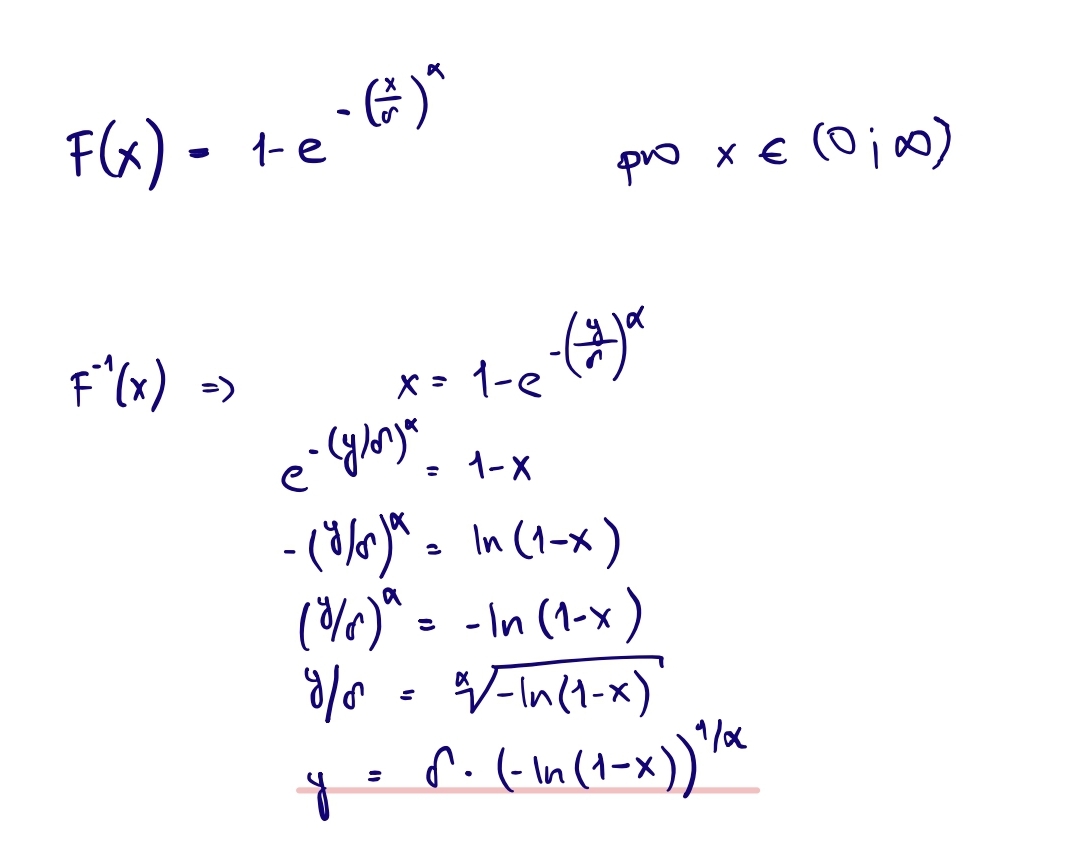 F(x) = 1-e^{-(x/δ)^α} pro x ∈ (0; ∞)
F^{-1}(x) => x = 1-e^{-(y/δ)^α}
e^{-(y/δ)^α} = 1-x
-(y/δ)^α = ln(1-x)
(y/δ)^α = -ln(1-x)
y/δ = α√(-ln(1-x))
y = δ·(-ln(1-x))^{1/α}